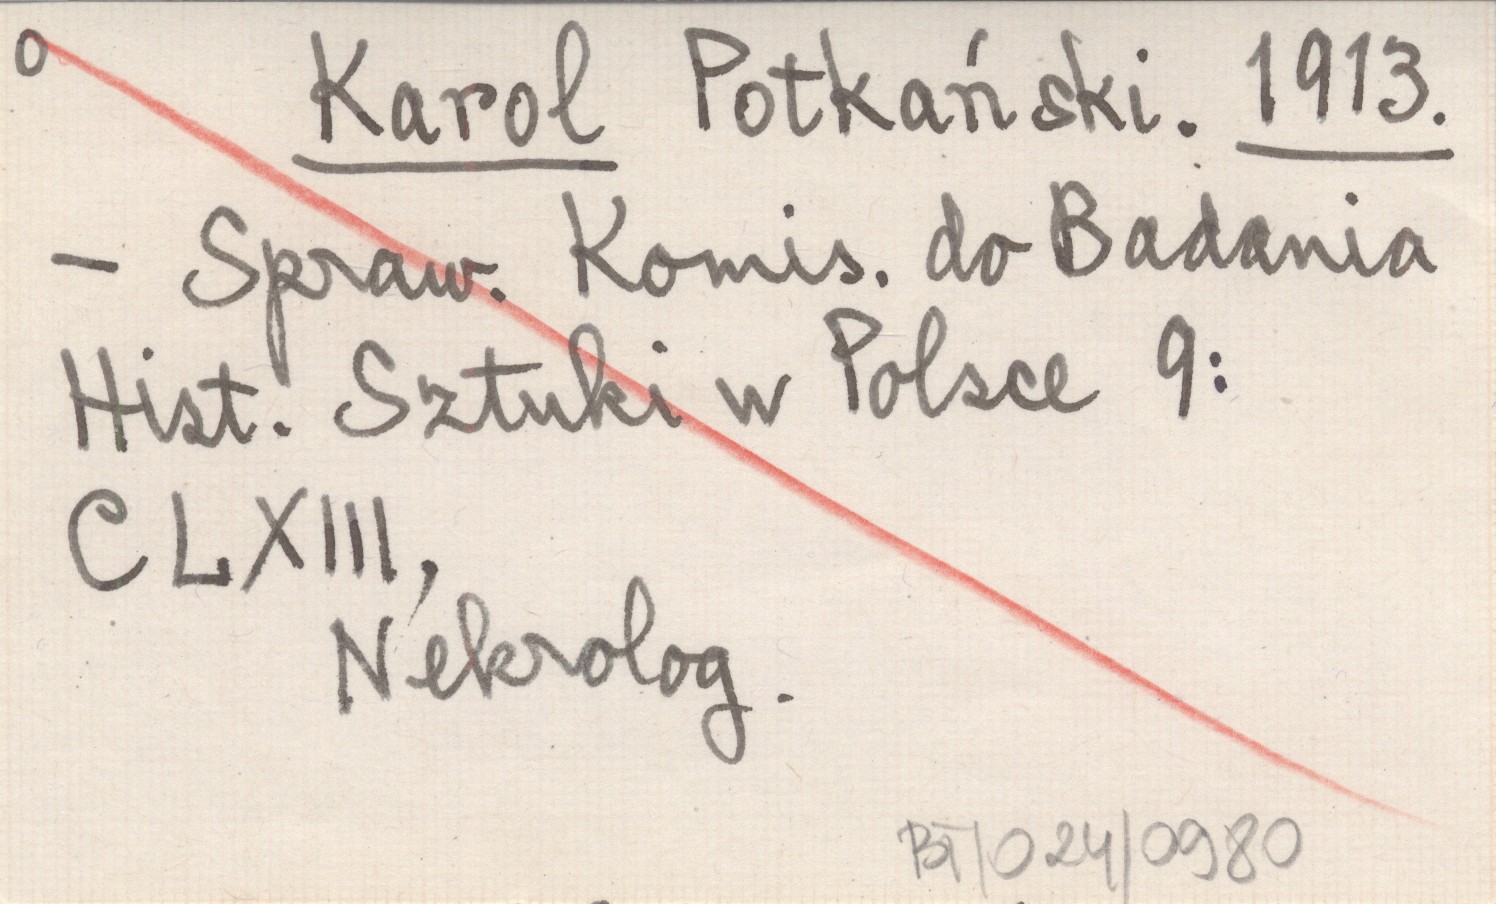 o Karol Potkański. 1913.
- Spraw. Komis. do Badania
Hist. Sztuki w Polsce 9:
CLXIII,
Nekrolog.
BT/024/0980